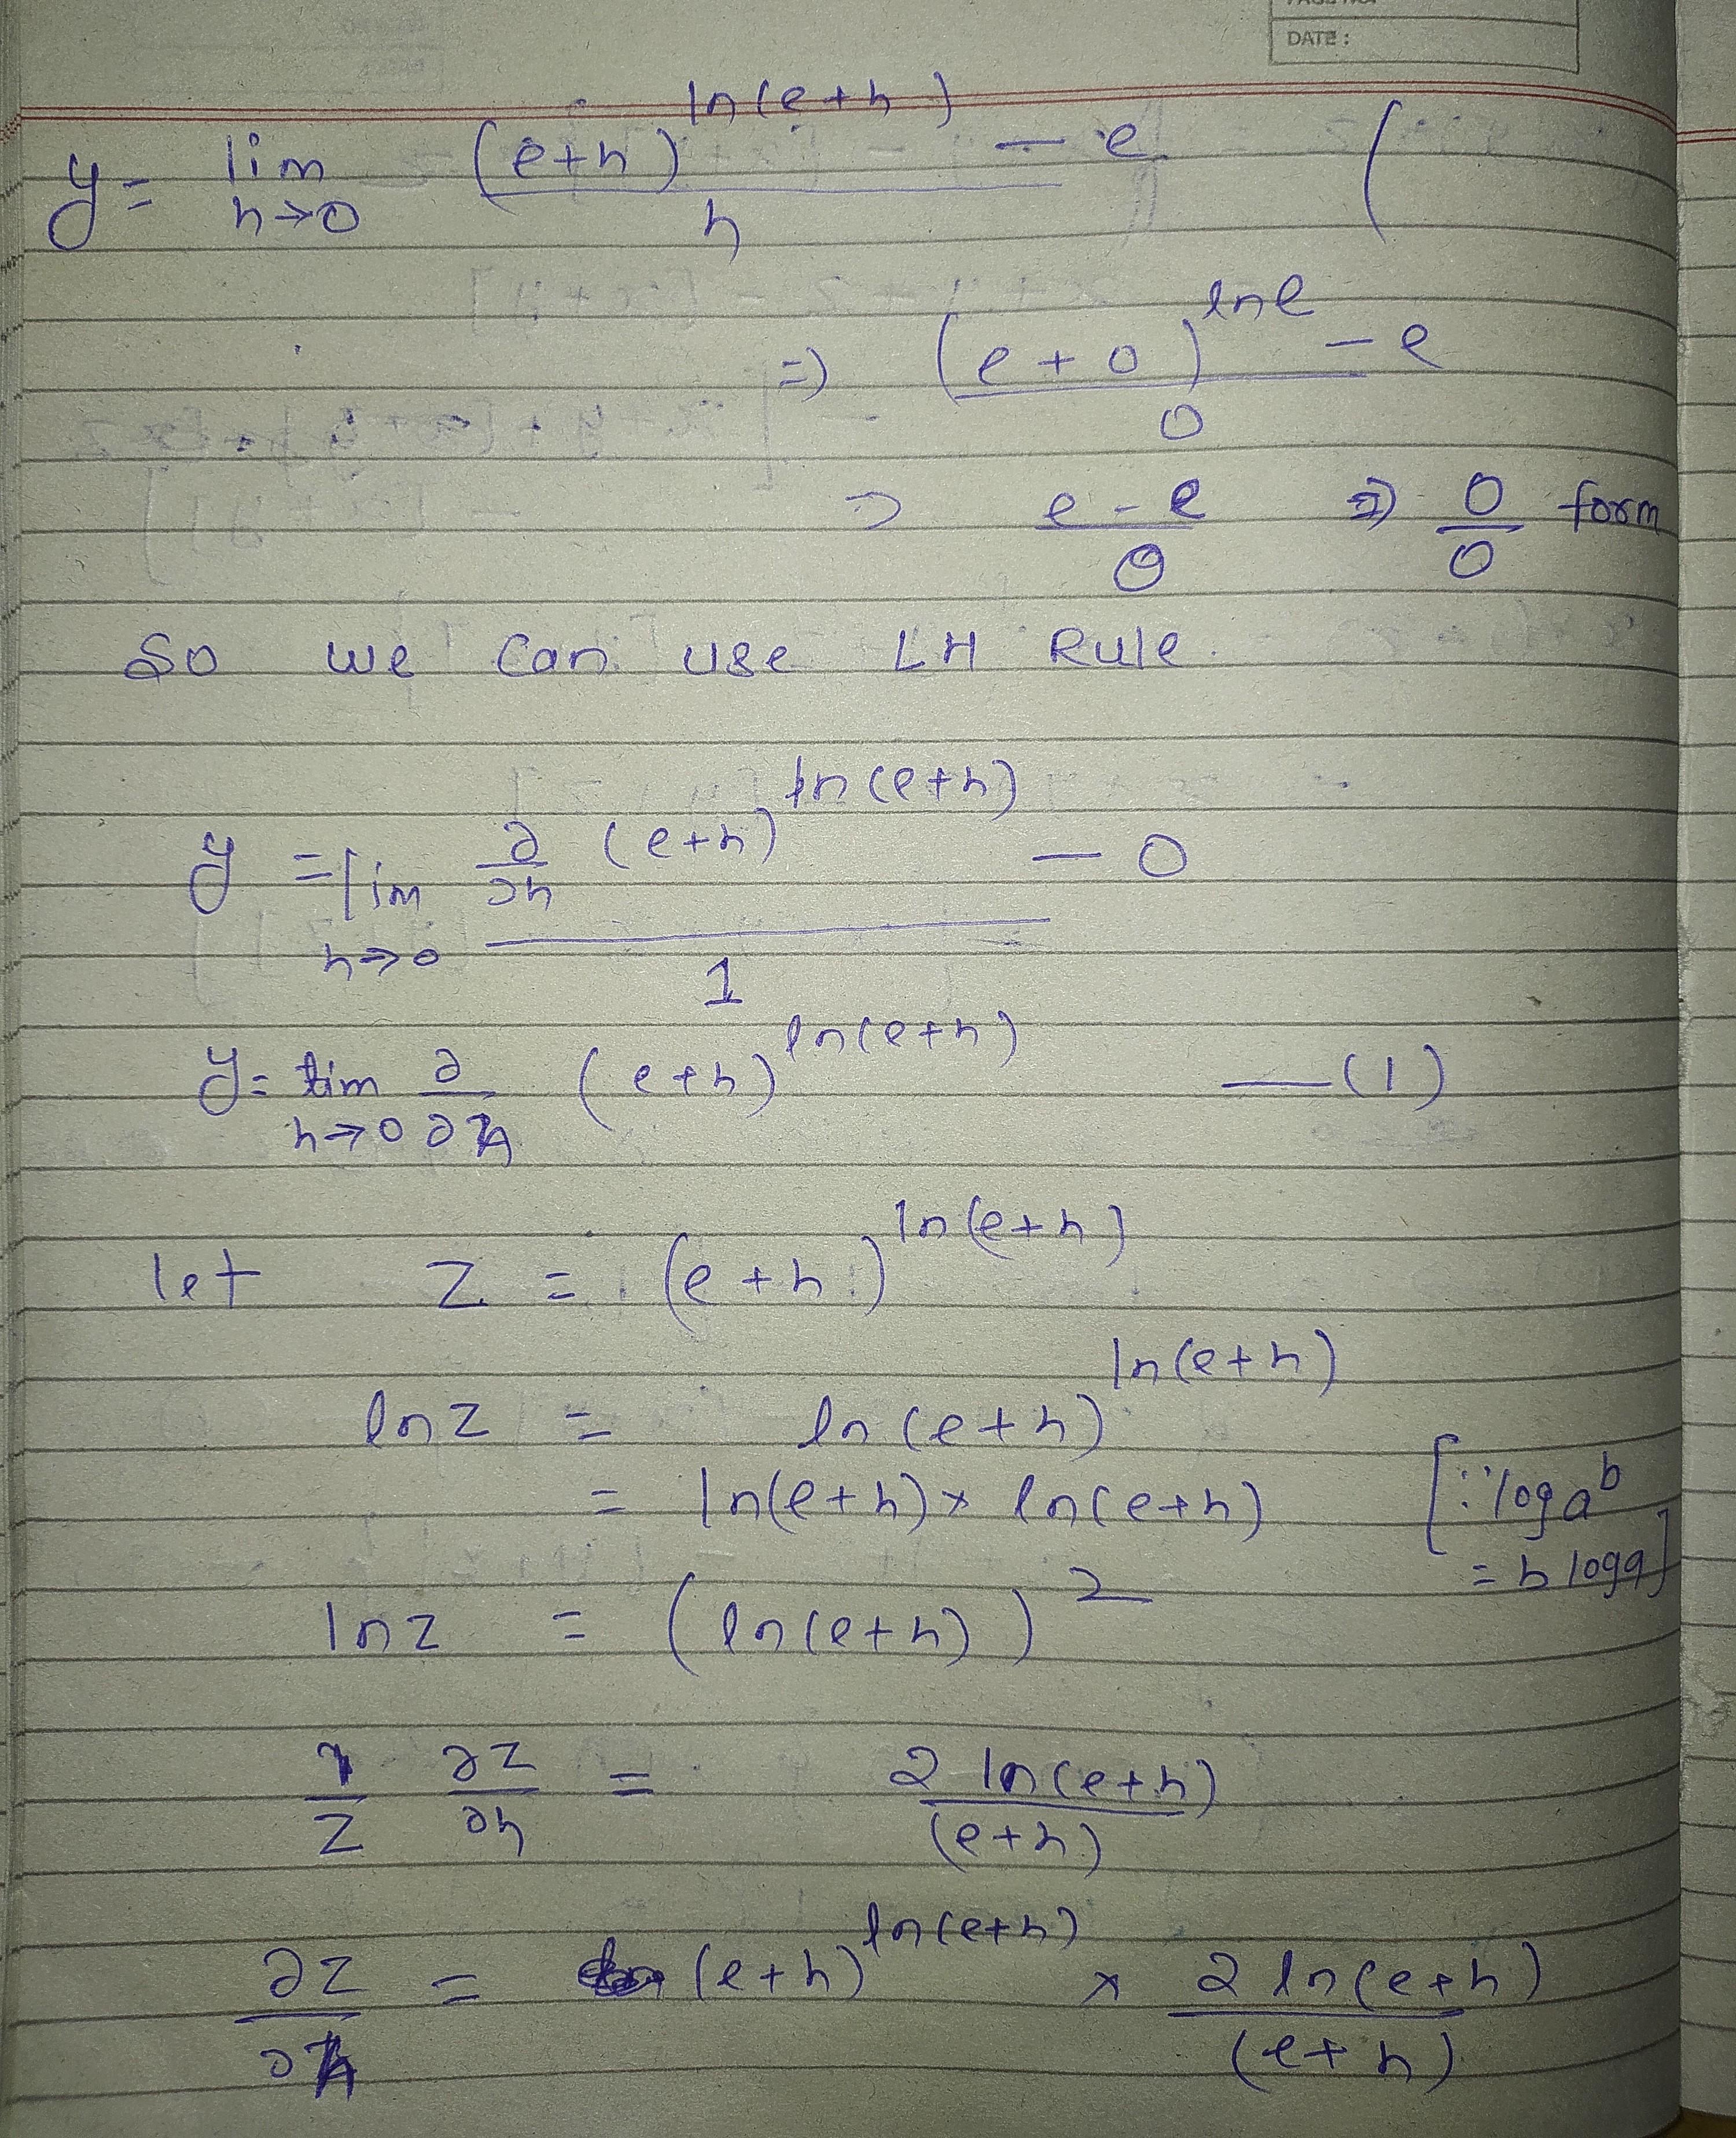 PAGE NO.
DATE :
y = lim h→0 ((e+h)^ln(e+h) - e)/h (
=) ((e+0)^lne - e)/0
=) (e-e)/0 =) 0/0 form
So we can use LH Rule.
y = lim h→0 (∂/∂h (e+h)^ln(e+h) - 0)/1
y = lim h→0 ∂/∂h (e+h)^ln(e+h) —(1)
let z = (e+h)^ln(e+h)
ln z = ln(e+h)^ln(e+h)
= ln(e+h) × ln(e+h) [∵ log a^b = b log a]
ln z = (ln(e+h))^2
1/z ∂z/∂h = 2 ln(e+h)/(e+h)
∂z/∂h = (e+h)^ln(e+h) × 2 ln(e+h)/(e+h)